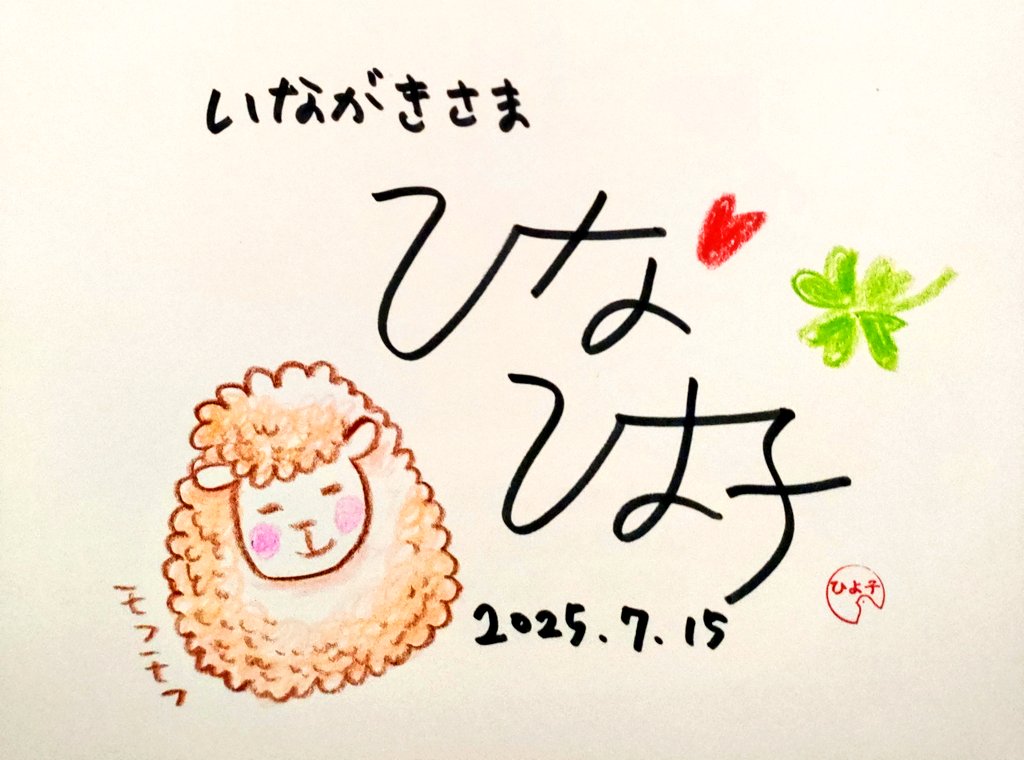 いながきさま
ひな
ひよ子
2025.7.15
モフモフ
ひよ子